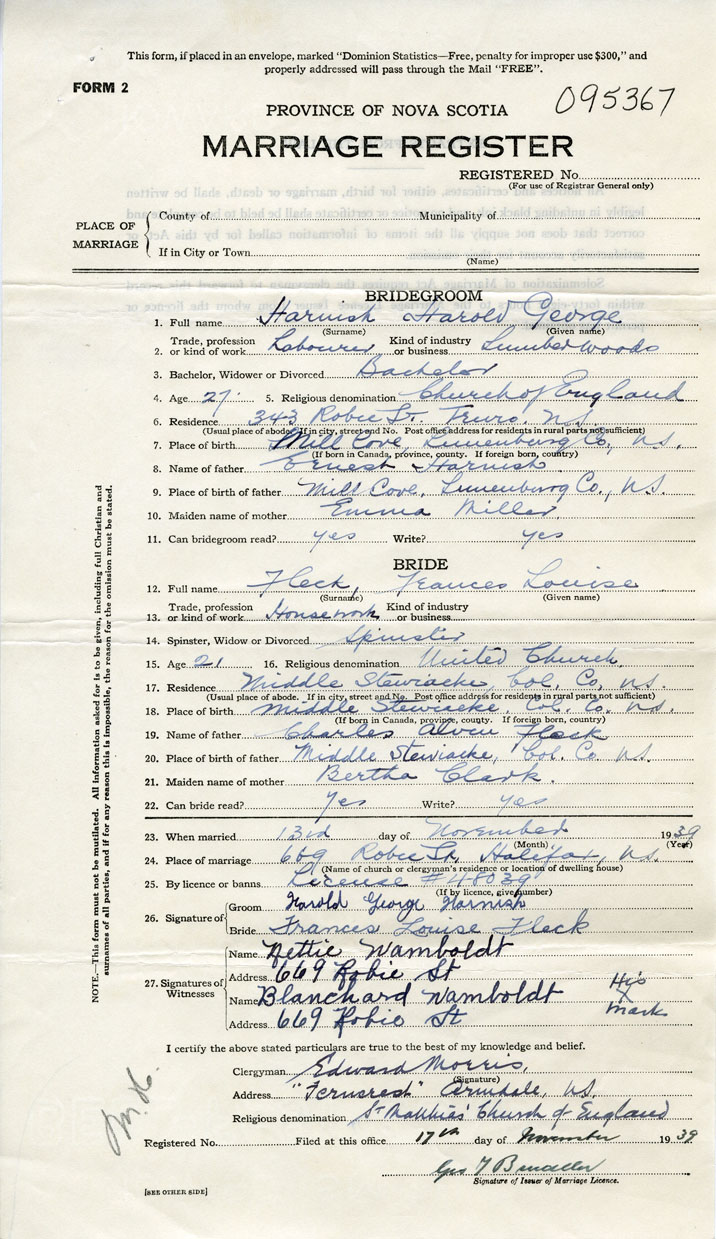 This form, if placed in an envelope, marked "Dominion Statistics—Free, penalty for improper use $300," and
properly addressed will pass through the Mail "FREE".
FORM 2
095367
PROVINCE OF NOVA SCOTIA
MARRIAGE REGISTER
REGISTERED No.
(For use of Registrar General only)
PLACE OF MARRIAGE
County of Municipality of
If in City or Town
(Name)
BRIDEGROOM
1. Full name Harnish Harold George
(Surname) (Given name)
2. Trade, profession or kind of work Labourer Kind of industry or business Lumber woods
3. Bachelor, Widower or Divorced Bachelor
4. Age 27 5. Religious denomination Church of England
6. Residence 343 Robie St. Truro, N.S.
(Usual place of abode. If in city, street and No. Post office address for residents in rural parts not sufficient)
7. Place of birth Mill Cove, Lunenburg Co., N.S.
(If born in Canada, province, county. If foreign born, country)
8. Name of father Ernest Harnish
9. Place of birth of father Mill Cove, Lunenburg Co., N.S.
10. Maiden name of mother Emma Miller
11. Can bridegroom read? yes Write? yes
BRIDE
12. Full name Fleck, Frances Louise
(Surname) (Given name)
13. Trade, profession or kind of work Housework Kind of industry or business
14. Spinster, Widow or Divorced Spinster
15. Age 21 16. Religious denomination United Church.
17. Residence Middle Stewiacke Col. Co, N.S.
(Usual place of abode. If in city, street and No. Post office address for residents in rural parts not sufficient)
18. Place of birth Middle Stewiacke, Col. Co. N.S.
(If born in Canada, province, county. If foreign born, country)
19. Name of father Charles Alvin Fleck
20. Place of birth of father Middle Stewiacke, Col. Co N.S.
21. Maiden name of mother Bertha Clark.
22. Can bride read? Yes Write? Yes
23. When married 13rd day of November 1939
(Month) (Year)
24. Place of marriage 669 Robie St, Halifax, N.S.
(Name of church or clergyman's residence or location of dwelling house)
25. By licence or banns License # 48039
(If by licence, give number)
26. Signature of
Groom Harold George Harnish
Bride Frances Louise Fleck
27. Signatures of Witnesses
Name Nettie Wamboldt
Address 669 Robie St
Name Blanchard Wamboldt His X mark
Address 669 Robie St
I certify the above stated particulars are true to the best of my knowledge and belief.
Clergyman Edward Morris,
(Signature)
Address "Ferncrest" Armdale, N.S.
Religious denomination St Matthias' Church of England
Registered No. Filed at this office 17th day of November 1939
Signature of Issuer of Marriage Licence.
[SEE OTHER SIDE]
NOTE.—This form must not be mutilated. All information asked for is to be given, including full Christian and
surnames of all parties, and if for any reason this is impossible, the reason for the omission must be stated.